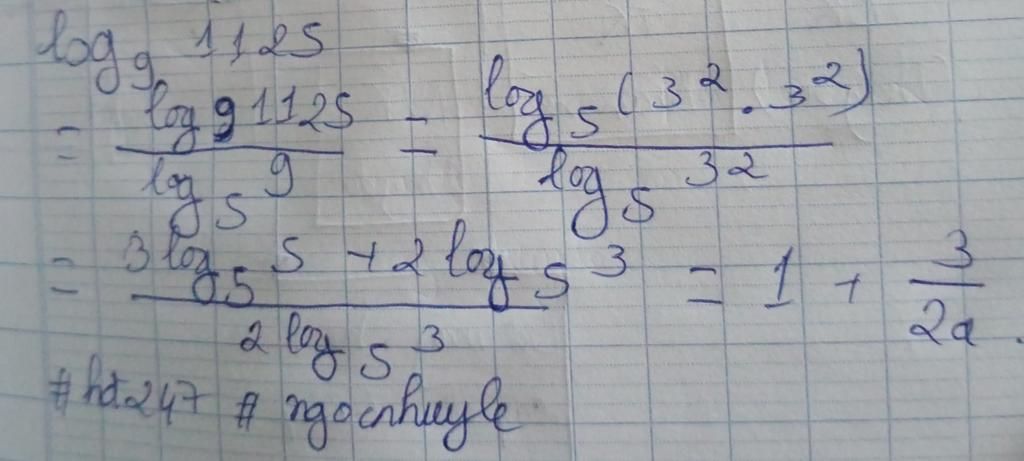 log₉ 1125
= log₉ 1125 / log₅ 9 = log₅ (3² . 3²) / log₅ 3²
= 3 log₅ 5 + 2 log₅ 3 / 2 log₅ 3 = 1 + 3 / 2a .
#hd247 # ngocnhuyle